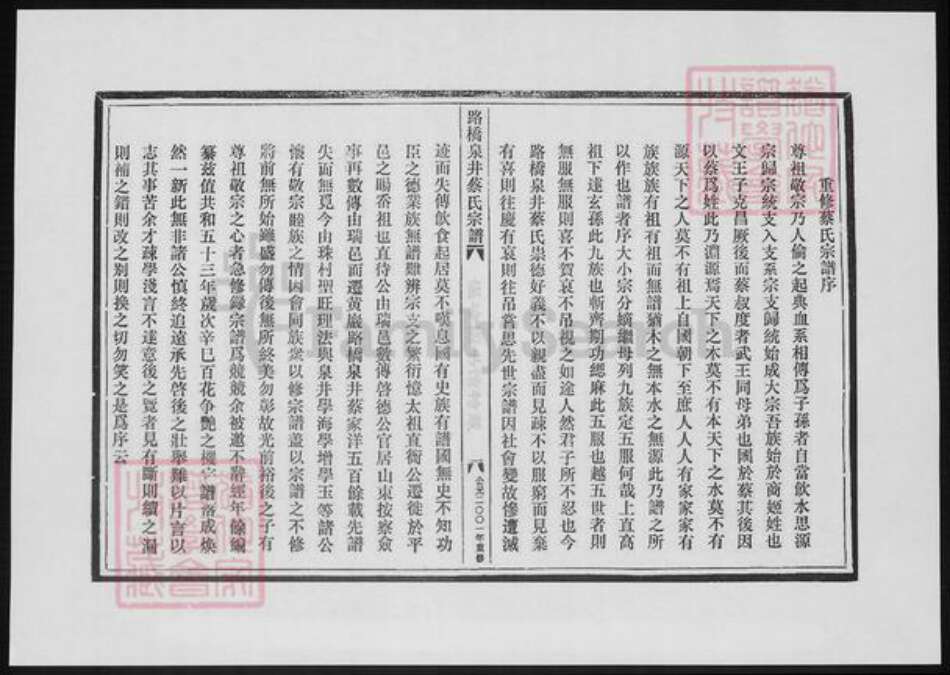 重修蔡氏宗譜序
尊祖敬宗乃人倫之起典血系相傳爲子孫者自當飲水思源
宗歸宗統支入支系宗支歸統始成大宗吾族始於商姬姓也
文王子克昌厥後而蔡叔度者武王同母弟也國於蔡其後因
以蔡爲姓此乃淵源焉天下之木莫不有本天下之水莫不有
源天下之人莫不有祖上自國朝下至庶人人人有家家家有
族族族有祖有祖而無譜猶木之無本水之無源此乃譜之所
以作也譜者序大小宗分嫡繼母列九族定五服何哉上直高
祖下逮玄孫此九族也斬齊期功緦麻此五服也越五世者則
無服無服則喜不賀哀不吊視之如途人然君子所不忍也今
路橋泉井蔡氏崇德好義不以親盡而見疎不以服窮而見棄
有喜則往慶有哀則往吊嘗思先世宗譜因社會變故慘遭滅
路橋泉井蔡氏宗譜
公元二〇〇一年重修
迹而失傳飲食起居莫不嘆息國有史族有譜國無史不知功
臣之德業族無譜難辨宗支之繁衍憶太祖直衡公遷徙於平
邑之暘岙祖也直待公由瑞邑數傳啓德公官居山東按察僉
事再數傳由瑞邑而遷黃巖路橋泉井蔡家洋五百餘載先譜
失而無覓今由珠村聖旺理法與泉井學海學增學玉等諸公
懷有敬宗睦族之情因會同族衆以修宗譜蓋以宗譜之不修
將前無所始雖盛勿傳後無所終美勿彰故光前裕後之子有
尊祖敬宗之心者急修録宗譜爲競競余被邀不辭經年餘編
纂兹值共和五十三年歲次辛巳百花争艷之機宗譜落成焕
然一新此無非諸公慎終追遠承先啓後之壯舉難以片言以
志其事苦余才疎學淺言不達意後之覽者見有斷則續之漏
則補之錯則改之别則换之切勿笑之是爲序云
FamilySearch